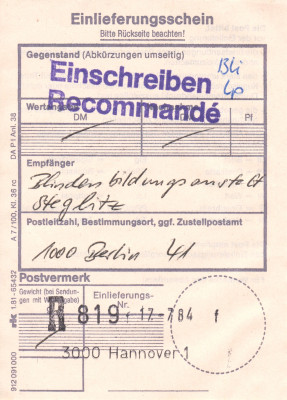 Einlieferungsschein
Bitte Rückseite beachten!
Gegenstand (Abkürzungen umseitig)
Einschreiben
Recommandé
Bli
Lp
DM
Pf
Empfänger
Blindenbildungsanstalt
Steglitz
Postleitzahl, Bestimmungsort, ggf. Zustellpostamt
1000 Berlin 41
Postvermerk
Gewicht (bei Sendun-
gen mit Wertangabe)
Einlieferungs-
Nr.
R 819 f 17-784 f
3000 Hannover 1
DA P I Anl. 38
A 7/100, Kl. 36 rc
181-65432
912 091 000